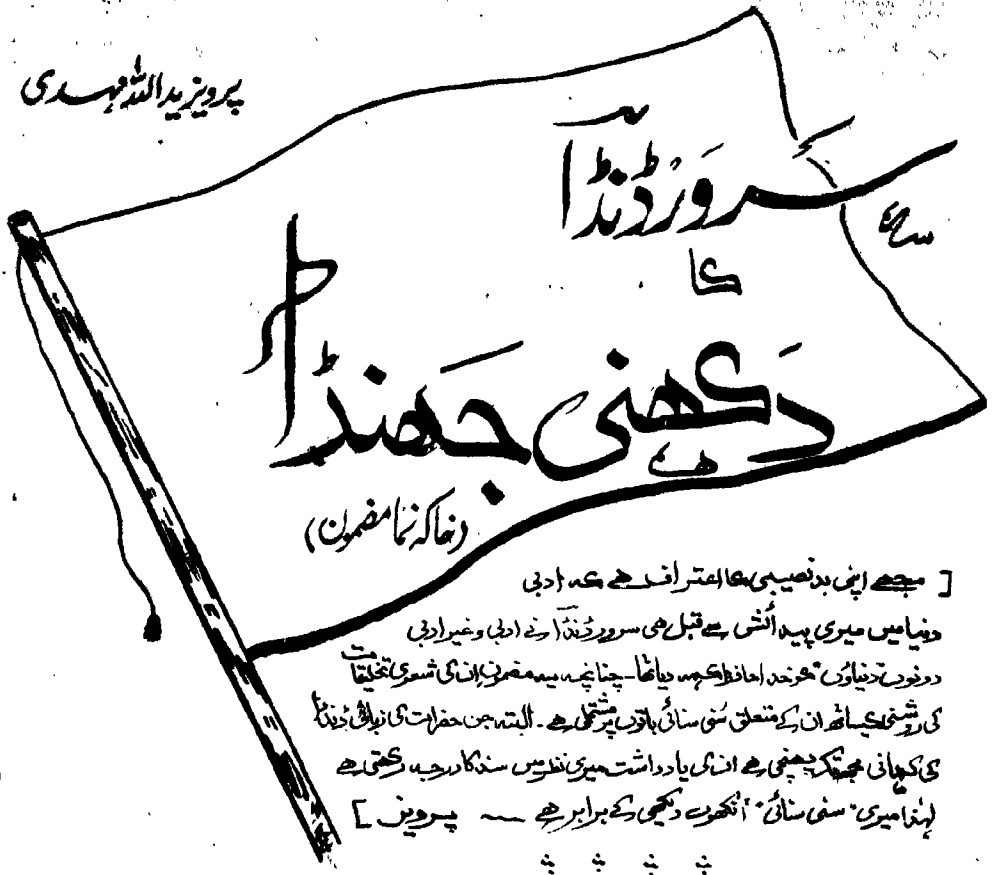 پرویز یداللہ مہدی
سَروَر ڈنڈا
کا
دکھنی جھنڈا
(خاکہ نما مضمون)
[ مجھے اپنی بدنصیبی کا اعتراف ہے کہ ادبی
دنیا میں میری پیدائش سے قبل ھی سرور ڈنڈا نے ادبی و غیر ادبی
دونوں "دنیاؤں" کو خدا حافظ کہہ دیا تھا۔ چنانچہ یہ مضمون ان کی شعری تخلیقات
کی روشنی کیساتھ ان کے متعلق سُنی سنائی باتوں پر مشتمل ہے۔ البتہ جن حضرات کی زبانی ڈنڈا
کی کہانی مجھ تک پہنچی ہے ان کی یادداشت میری نظر میں سند کا درجہ رکھتی ہے
لہٰذا میری "سنی سنائی" آنکھوں دیکھی کے برابر ھے ـــ پرویز ]